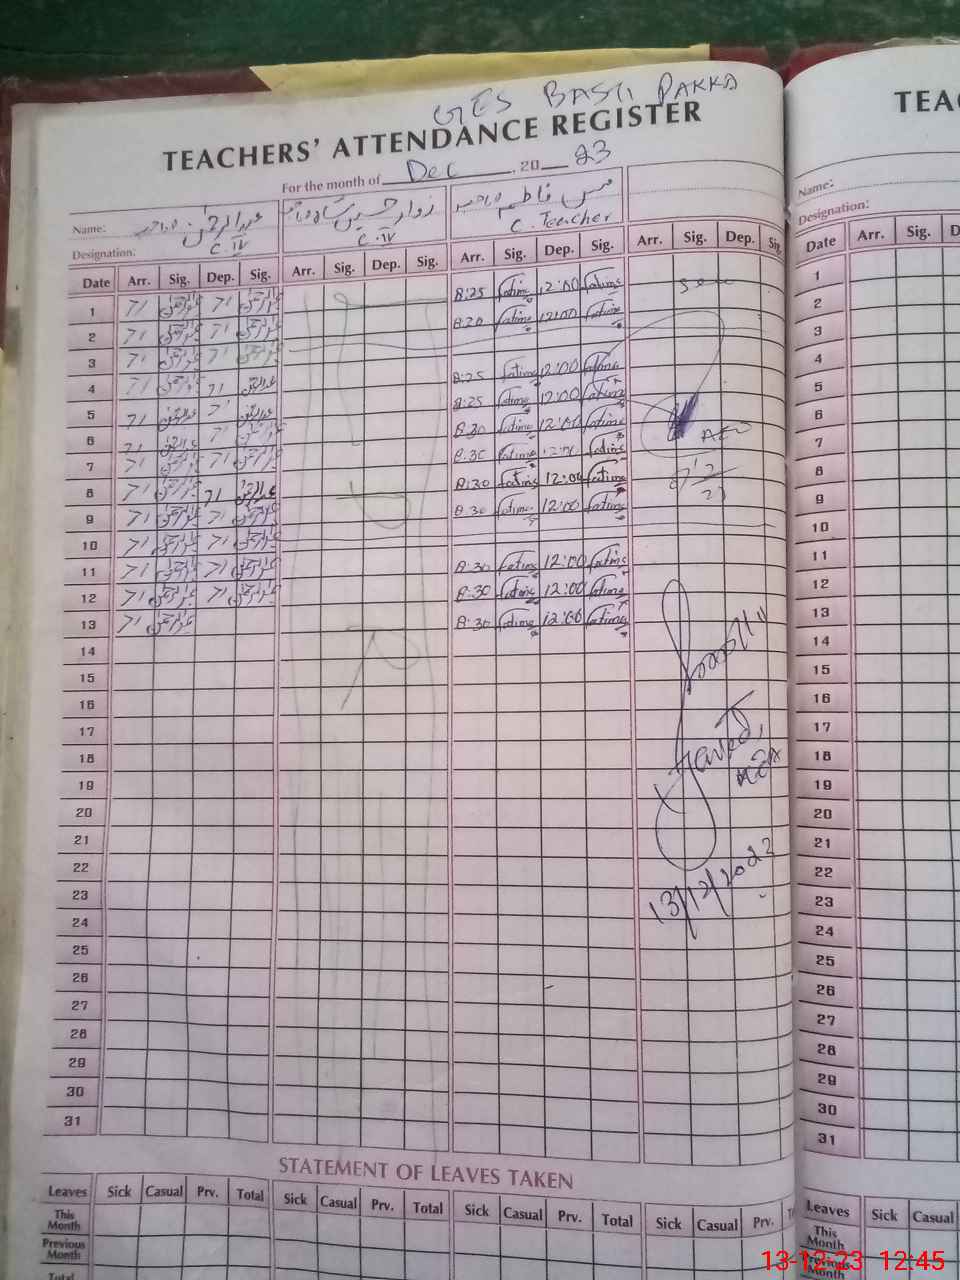 GES BASTI PAKKA
TEACHERS' ATTENDANCE REGISTER
For the month of Dec, 2023
Name: عبدالرحمٰن صاحب زوار حسین شاہ صاحب مس فاطمہ صاحبہ
Designation: C. IV C. IV C. Teacher
Date Arr. Sig. Dep. Sig. Arr. Sig. Dep. Sig. Arr. Sig. Dep. Sig. Arr. Sig. Dep. Sig.
1 8:25 Fatima 12:00 Fatima Seen
2 8:30 Fatima 12:00 Fatima
3
4 8:25 Fatima 12:00 Fatima
5 8:25 Fatima 12:00 Fatima
6 8:30 Fatima 12:00 Fatima AEO
7 8:30 Fatima 12:00 Fatima
8 8:30 Fatima 12:00 Fatima
9 8:30 Fatima 12:00 Fatima
10
11 8:30 Fatima 12:00 Fatima
12 8:30 Fatima 12:00 Fatima
13 8:30 Fatima 12:00 Fatima
14
15
16
17
18
19
20
21
22
23
24
25
26
27
28
29
30
31
13/12/2023
STATEMENT OF LEAVES TAKEN
Leaves Sick Casual Prv. Total Sick Casual Prv. Total Sick Casual Prv. Total Sick Casual Prv.
This Month
Previous Month
Total
TEAC
Name:
Designation:
Date Arr. Sig. D
1
2
3
4
5
6
7
8
9
10
11
12
13
14
15
16
17
18
19
20
21
22
23
24
25
26
27
28
29
30
31
Leaves Sick Casual
This Month
Previous Month
13-12-23 12:45